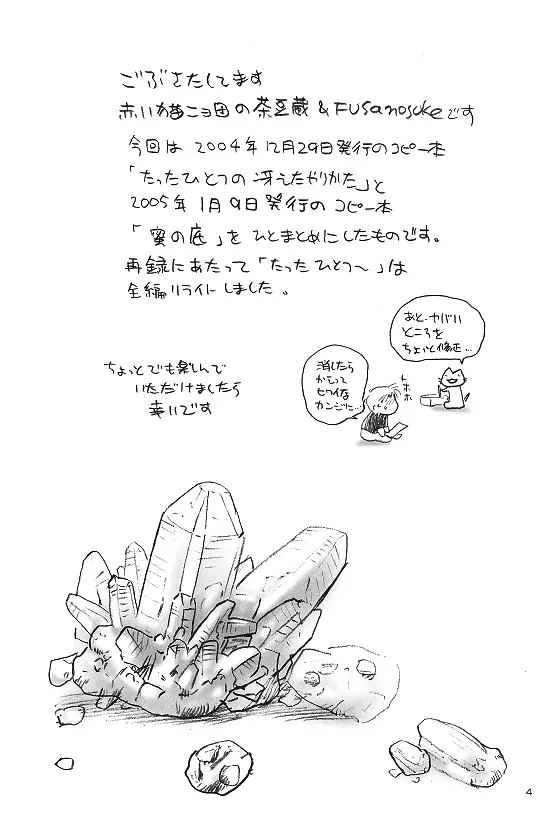 ごぶさたしてます
赤い猫ニョ団の茶豆蔵&FUSanosukeです
今回は2004年12月29日発行のコピー本
「たったひとつの冴えたやりかた」と
2005年1月9日発行のコピー本
「蜜の底」をひとまとめにしたものです。
再録にあたって「たったひとつ〜」は
全編リライトしました。
あと、ヤバい
ところを
ちょっと修正…
ホホ
消したら
かえって
ヒワイな
カンジに…
ちょっとでも楽しんで
いただけましたら
幸いです
4